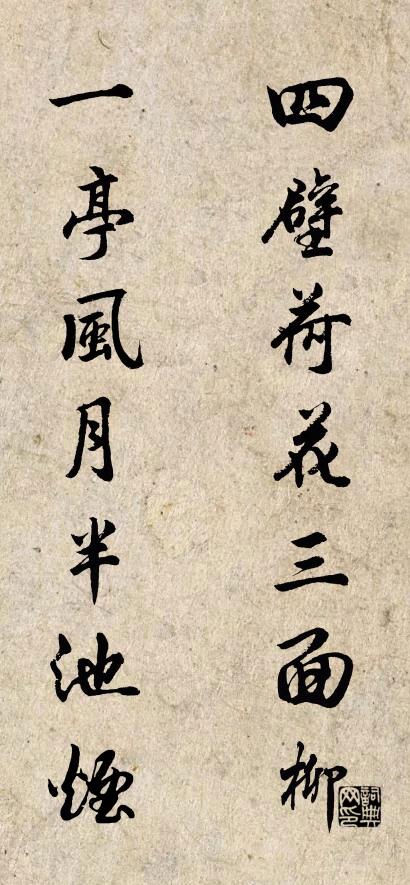 四壁荷花三面柳
一亭風月半池煙
詞典网印